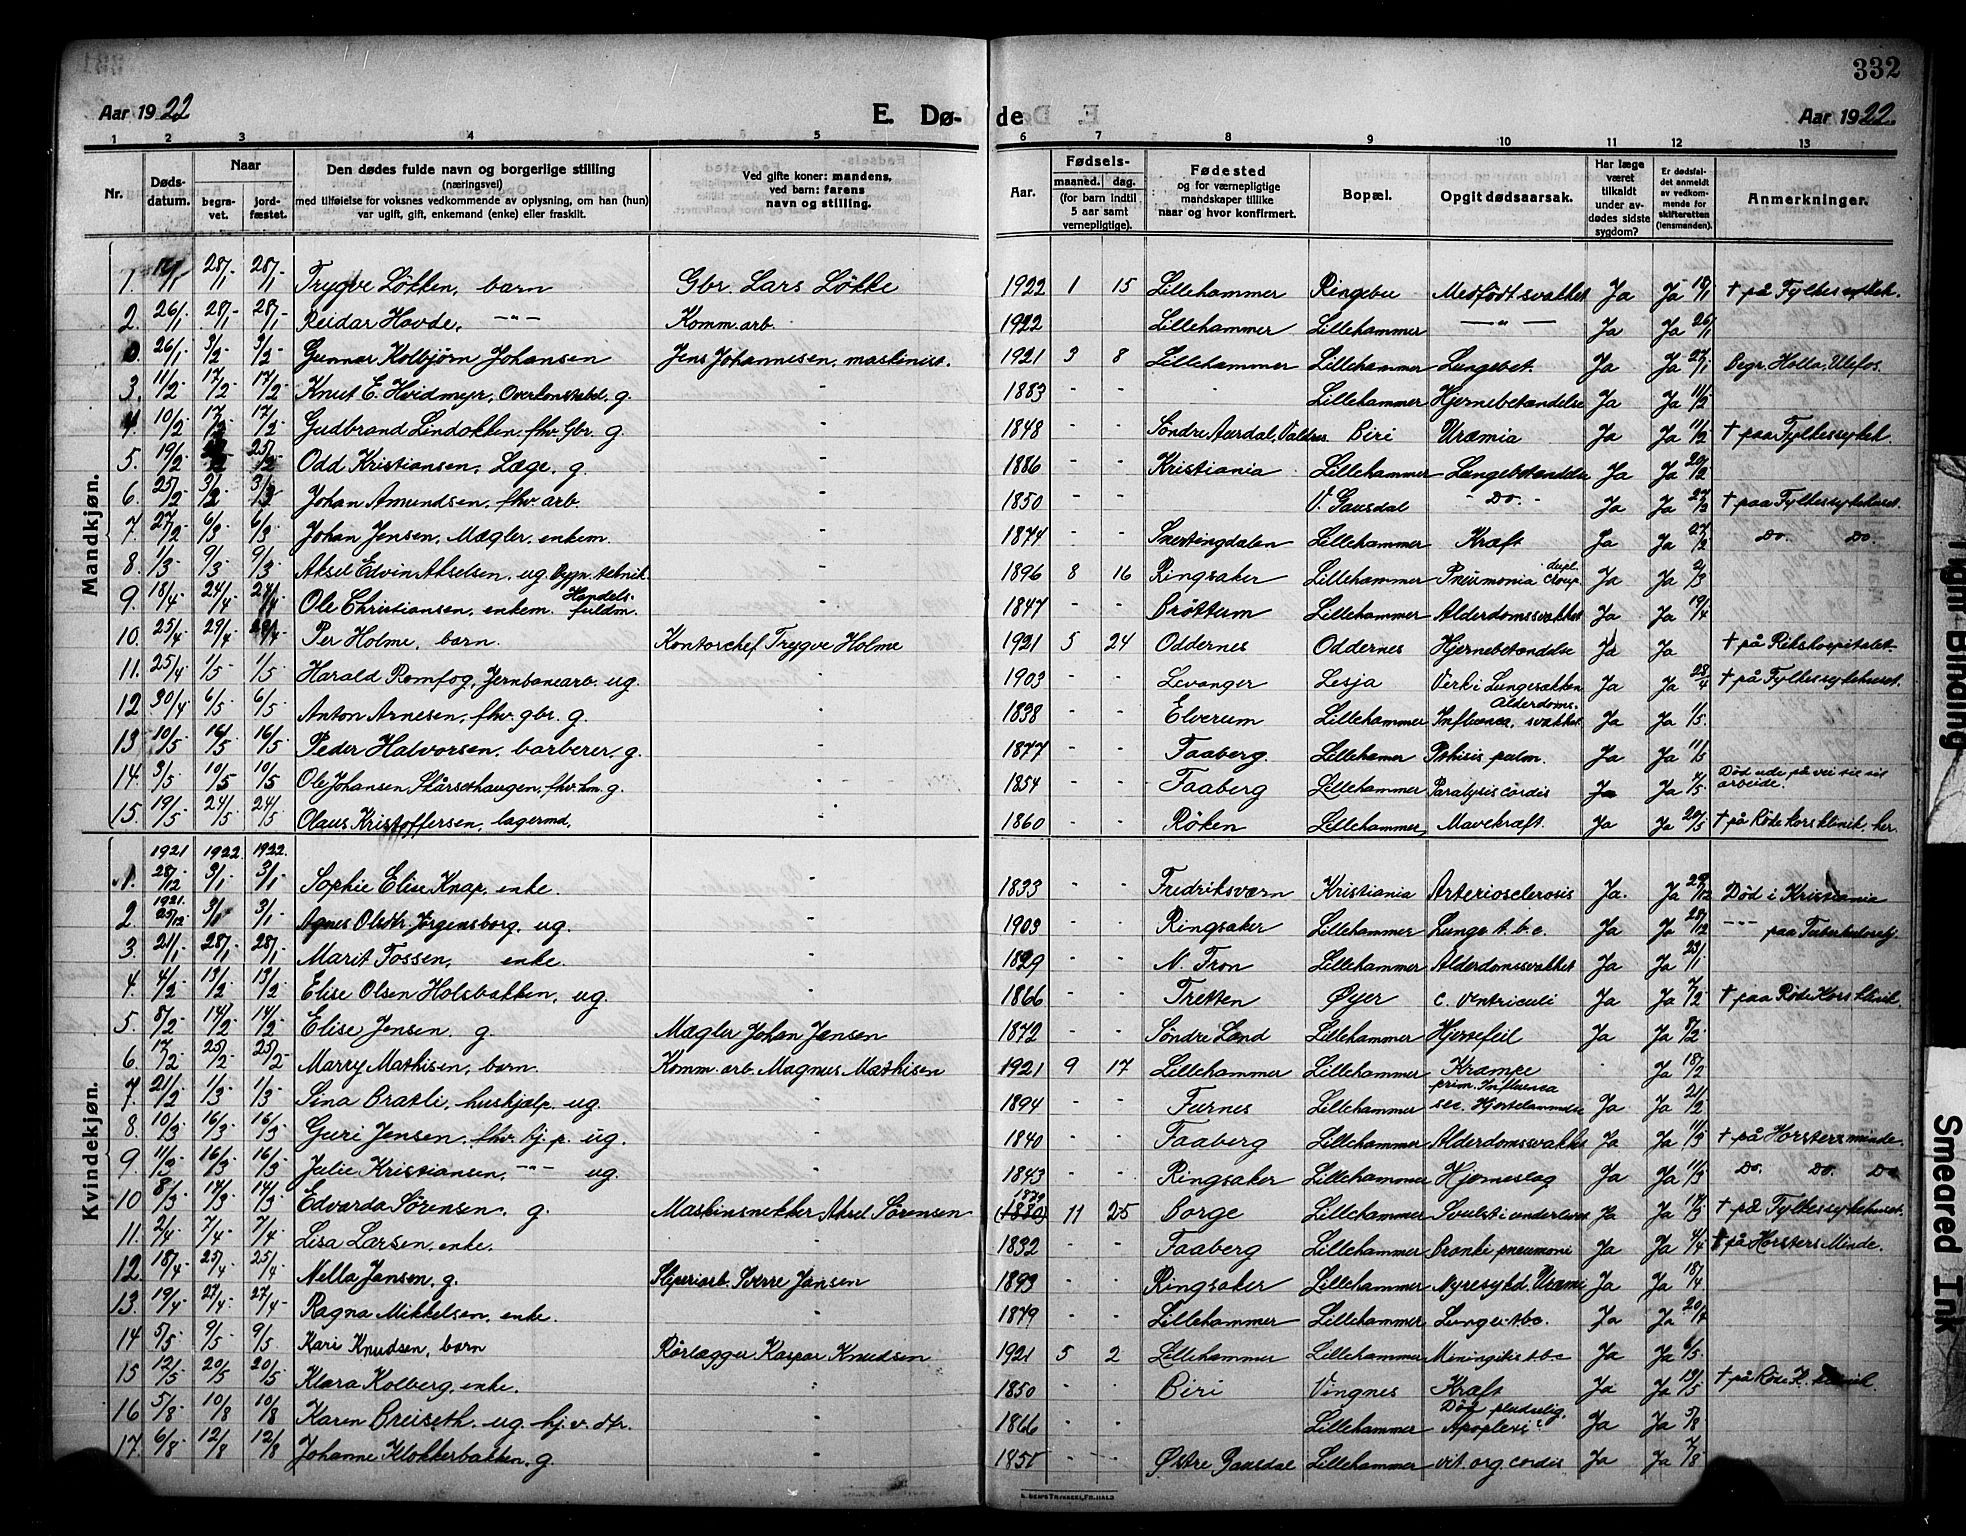 332
Aar 1922 E. Dø- de Aar 1922
1 2 3 4 5 6 7 8 9 10 11 12 13
Nr. Døds-datum. Naar begra-vet. jord-fæstet. Den dødes fulde navn og borgerlige stilling (næringsvei) med tilføielse for voksnes vedkommende av oplysning, om han (hun) var ugift, gift, enkemand (enke) eller fraskilt. Ved gifte koner: mandens, ved barn: farens navn og stilling. Aar. Fødsels- maaned. dag. (for barn indtil 5 aar samt vernepligtige). Fødested og for værnepligtige mandskaper tillike naar og hvor konfirmert. Bopæl. Opgit dødsaarsak. Har læge været tilkaldt under av-dødes sidste sygdom? Er dødsfal-det anmeldt av vedkom-mende for skifteretten (lensmanden). Anmerkninger.
Mandkjøn.
1. 28/1 28/1 Trygve Løkken, barn Gbr. Lars Løkke 1922 1 15 Lillehammer Ringebu Medfødt svakhet Ja Ja 18/1 † på Fylkessykeh.
2. 26/1 28/1 28/1 Reidar Hovde, -"- Komm. arb. 1922 Lillehammer Lillehammer -"- Ja Ja 26/1
0 26/1 3/2 3/2 Gunnar Kolbjørn Johansen Jens Johannesen, maskinist. 1921 3 8 Lillehammer Lillehammer Lungebet. Ja Ja 27/1 Begr. Holla, Ulefos.
3. 11/2 17/2 17/2 Knut E. Hvidmeyr, Overkonstabel, g. - 1883 - - - Lillehammer Hjernebetændelse Ja Ja 11/2
4. 10/2 17/2 17/2 Gudbrand Lindokken, fhv. Gbr. g. - 1848 - - Søndre Aurdal, Valdres Biri Uræmia Ja Ja 11/2 † paa Fylkessykeh.
5. 19/2 25/2 Odd Kristiansen, Læge, g. - 1886 - - Kristiania Lillehammer Lungebetændelse Ja Ja 20/2
6. 25/2 3/2 3/3 Johan Amundsen, fhv. arb. - 1850 - - V. Gausdal - Do. - Ja Ja 27/2 † paa Fylkessykehuset.
7. 27/2 6/3 6/3 Johan Jensen, Mægler, enkem. - 1874 - - Snertingdalen Lillehammer Kræft Ja Ja 27/2 Do. Do.
8. 1/3 9/3 9/3 Aksel Edvin Akselsen, ug. Bygn. teknik. - 1896 8 16 Ringsaker Lillehammer Pneumonia dupl. croup. Ja Ja 2/3
9. 18/4 24/4 24/4 Ole Christiansen, enkem. Handels-fuldm. - 1847 - - Brøttum Lillehammer Alderdomssvakhet Ja Ja 19/4
10. 25/4 29/4 29/4 Per Holme, barn. Kontorchef Trygve Holme 1921 5 24 Oddernes Oddernes Hjernebetændelse Ja Ja † på Rikshospitalet
11. 25/4 1/5 1/5 Harald Romfog, Jernbanearb. ug. - 1903 - - Levanger Lesja Verk i Lungesækken Ja Ja 28/4 † på Fylkessykehuset.
12 30/4 6/5 6/5 Anton Arnesen, fhv. gbr. g. - 1838 - - Elverum Lillehammer Influensa, Alderdoms-svakhet Ja Ja 1/5.
13 10/5 16/5 16/5 Peder Halvorsen, barberer, g. - 1877 - - Faaberg. Lillehamer Pthisis pulm. Ja Ja 11/5
14. 3/5 10/5 10/5 Ole Johansen Skårsethaugen, fhv. hm. g. - 1854 - - Faaberg Lillehammer Paralysis cordis Ja Ja 4/5. Død ude på vei til sit arbeide.
15. 19/5 24/5 24/5 Olaus Kristoffersen, lagermd, 1860 - - Røken Lillehammer Mavekræft. Ja Ja 20/5 † på Røde Kors klinik, her.
Kvindekjøn.
1921 1922. 1922.
1. 28/12 3/1 3/1 Sophie Elise Knap, enke. - 1833 - - Fredriksværn Kristiania Arteriosclerosis Ja. Ja 29/12 Død i Kristiania
2. 1921. 25/12 3/1 3/1 Agnes Olestr. Jørgensborg, ug. - 1903 - - Ringsaker Lillehammer Lunge t.b.c. Ja Ja 28/12 -"- paa Tuberkulosehj.
3. 21/1 28/1 28/1 Marit Fossen, enke. - 1829 - - N. Fron Lillehammer Alderdomssvakhet Ja Ja 23/1
4. 4/2 13/2 13/2 Elise Olsen Holsbakken, ug. - 1866 - - Tretten Øyer c. ventriculi Ja Ja 7/2 † paa Røde Kors klinik.
5. 8/2 14/2 14/2 Elise Jensen. g. Mægler Johan Jensen 1872 - - Søndre Land Lillehammer Hjertefeil Ja Ja 8/2
6. 17/2 25/2 25/2 Marry Mathisen, barn. Komm. arb. Magnus Mathisen 1921 9 17 Lillehammer Lillehammer Krampe - Ja 18/2
7. 21/2 1/3 1/3 Sina Bratli, huskjælp. ug. - 1894 - - Furnes Lillehammer prim. Influensa sec. Hjertelammelse Ja Ja 21/2
8. 10/3 16/3 16/3 Guri Jensen, fhv. hj. p. ug. - 1840 - - Faaberg Lillehammer Alderdomssvakhet Ja Ja 11/3 † på Horsters minde.
9. 11/3 16/3 16/3 Julie Kristiansen, -"- ug. - 1843 - - Ringsaker Lillehammer Hjerneslag Ja Ja 11/3 Do. Do. Do
10 8/3 14/3 14/3 Edvarda Sørensen, g. Maskinsnekker Aksel Sørensen 1879 (1880) 11 25 Borge Lillehammer Svulst i underlivet Ja Ja 17/3 † på Fylkessykehuset.
11. 2/4 7/4 7/4 Lisa Larsen, enke. - 1832 - - Faaberg Lillehammer Bronki pneumoni Ja Ja 4/4 † på Horsters Minde.
12. 18/4 25/4 25/4 Nella Jansen, g. Sliperiarb. Sverre Jansen 1893 - - Ringsaker Lillehammer Nyresykd. Uræmi Ja Ja 18/4
13. 19/4 27/4 27/4 Ragna Mikkelsen, enke. - 1879 - - Lillehammer Lillehammer Lunge t.b.c. Ja Ja 20/4
14 5/5 9/5 9/5 Kari Knudsen, barn Rørlægger Kaspar Knudsen 1921 5 2 Lillehammer Lillehammer Miningitis t.b.c Ja Ja 6/5
15 12/5 20/5 20/5 Klara Kolberg, enke. - 1850 - - Biri Vingnes Kræft Ja Ja 13/5 † på Røde K. klinik.
16 5/8 10/8 10/8 Karen Breiseth, ug. hj. v. dtr. - 1866 - - Lillehammer Død pludselig, Apoplexi? Ja Ja 5/8
17. 6/8 12/8 12/8 Johanne Klokkerbakken, g. - 1851 - - Østre Gausdal Lillehammer vit. org. cordis Ja Ja 7/8
Tight Binding
Smeared Ink